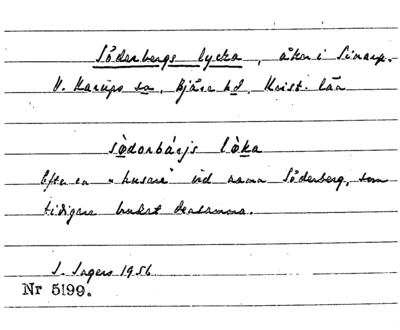 Söderbergs lycka, åker i Sinarp.
V. Karups sn, Bjäre hd, Krist. län
södərbærjs
Efter en "husare" vid namn Söderberg, som
tidigare brukat densamma.
1956
Nr 5199.